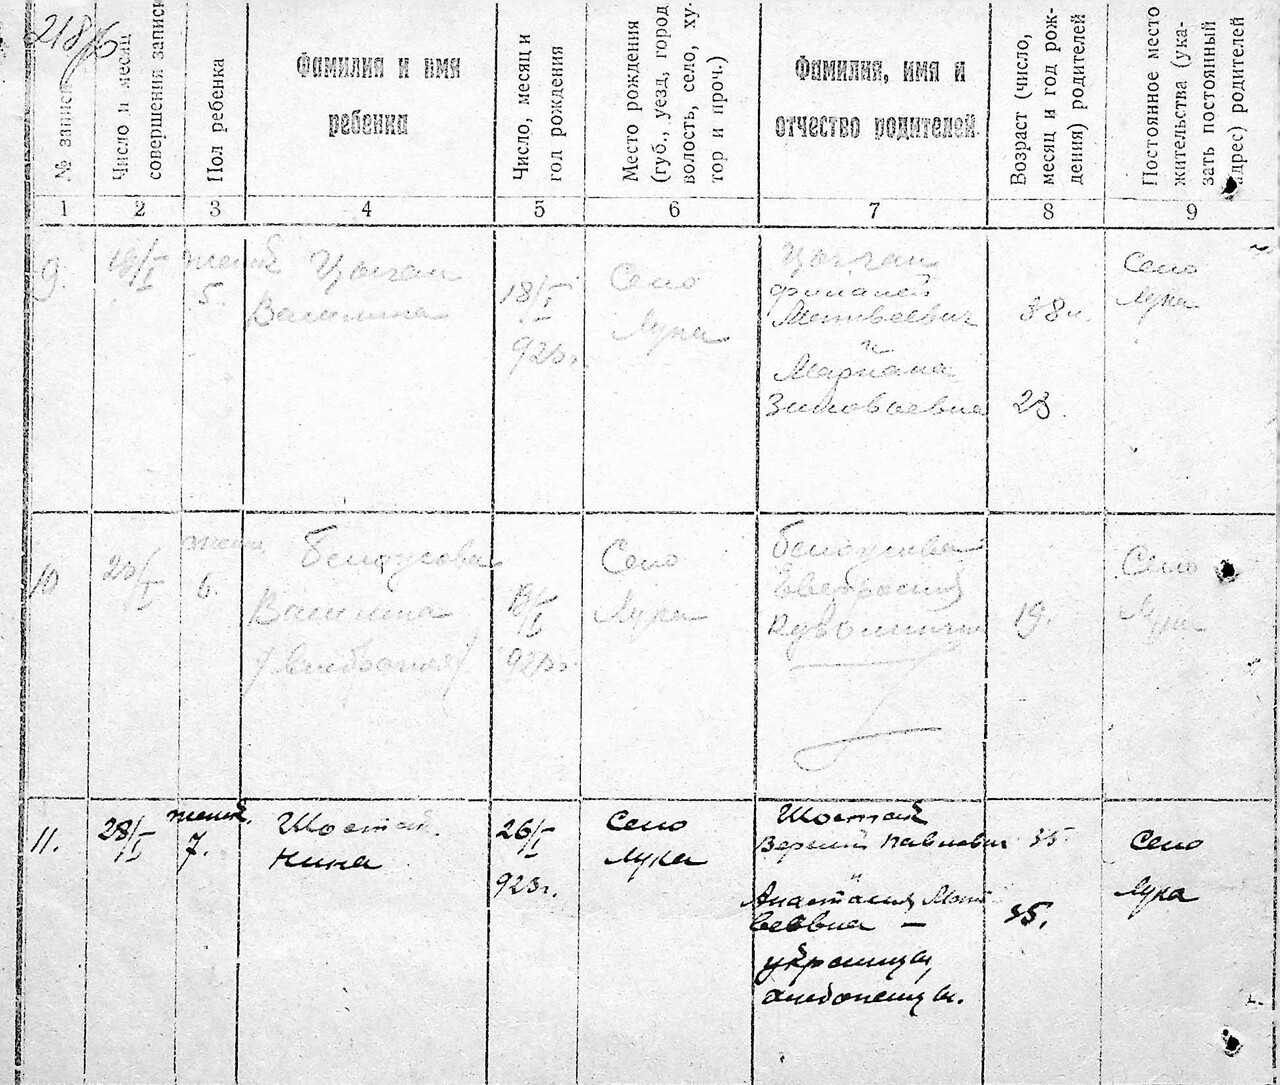 218/6
№ записи
Число и месяц
совершения записи
Пол ребенка
Фамилия и имя
ребенка
Число, месяц и
год рождения
Место рождения
(губ., уезд, город
волость, село, ху-
тор и проч.)
Фамилия, имя и
отчество родителей
Возраст (число,
месяц и год рож-
дения) родителей
Постоянное место
жительства (ука-
зать постоянный
адрес) родителей
1 2 3 4 5 6 7 8 9
9.
19/I
женск
5.
Василина
18/I
923г.
Село
Лука
Матвеевич
и
Мариана
Зиновьевна
38л.
23.
Село
Лука
10
23/I
женск
6.
Белоусова
Василина
19/I
923г.
Село
Лука
Белоусова
Евфросиния
19.
Село
Лука
11.
28/I
женск.
7.
Шостак
Нина
26/I
923г.
Село
Лука
Шостак
Павлович
и
Анастасия Мат
веевна —
украинцы,
35
35.
Село
Лука